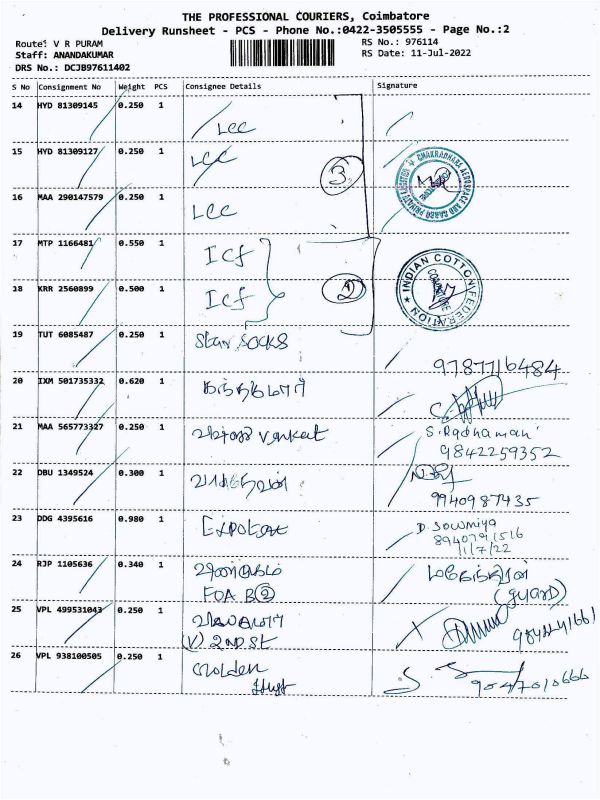 THE PROFESSIONAL COURIERS, Coimbatore
Delivery Runsheet - PCS - Phone No.:0422-3505555 - Page No.:2
Route: V R PURAM RS No.: 976114
Staff: ANANDAKUMAR RS Date: 11-Jul-2022
DRS No.: DCJB97611402
S No Consignment No Weight PCS Consignee Details Signature
14 HYD 81309145 0.250 1 LCC
15 HYD 81309127 0.250 1 LCC
3
CHAKRADHARA AEROSPACE AND CARGO PRIVATE LIMITED
16 MAA 290147579 0.250 1 LCC
17 MTP 1166481 0.550 1 Icf
18 KRR 2560899 0.500 1 Icf
2
INDIAN COTTON FEDERATION
19 TUT 6085487 0.250 1 Star SOCKS
9787716484
20 IXM 501735332 0.620 1
21 MAA 565773327 0.250 1 Venkat S.Radhamani
9842259352
22 DBU 1349524 0.300 1
9940987435
23 DDG 4395616 0.980 1 D. Sowmiya
8940791516
11/7/22
24 RJP 1105636 0.340 1
FOA B 2 (guard)
25 VPL 499531043 0.250 1
(V) 2ND ST
26 VPL 938100505 0.250 1 Golden
9047010666